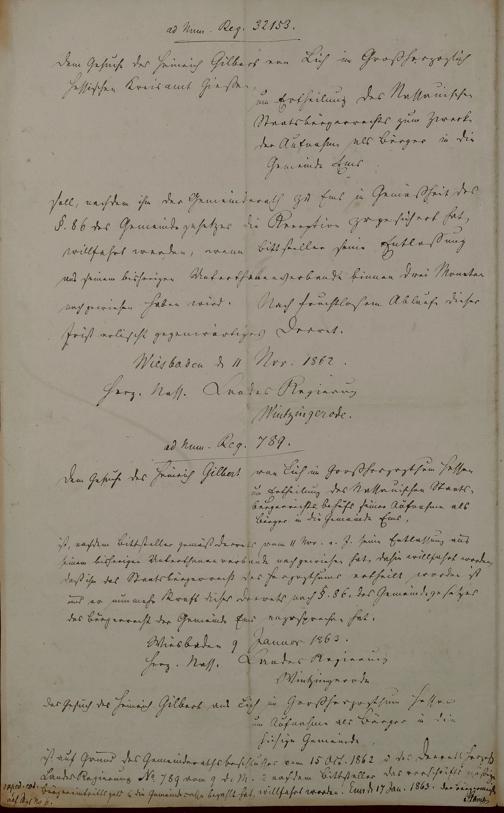 ad Num. Reg. 32153.
Dem Gesuche des Heinrich Gilberts von Lich im Großherzoglich
Hessischen Kreisamt Giessen
um Ertheilung des Nassauischen
Staatsbürgerrechts zum Zwecke
der Aufnahme als Bürger in die
Gemeinde Ems
soll, nachdem ihm der Gemeinderath zu Ems in Gemäßheit des
§. 86 des Gemeindegesetzes die Reception zugesichert hat,
willfahrt werden, wenn Bittsteller seine Entlassung
aus seinem bisherigen Unterthanenverbande binnen drei Monaten
nachgewiesen haben wird. Nach fruchtlosem Ablaufe dieser
Frist erlischt gegenwärtiges Decret.
Wiesbaden d 11 Nov. 1862.
Herz. Nass. Landes Regierung
Wintzingerode.
ad Num. Reg. 789.
Dem Gesuche des Heinrich Gilbert von Lich im Großherzogthum Hessen
um Ertheilung des Nassauischen Staats-
bürgerrechts behufs seiner Aufnahme als
Bürger in die Gemeinde Ems,
ist, nachdem Bittsteller gemäß Decrets vom 11 Nov. v. J. seine Entlassung aus
seinem bisherigen Unterthanenverbande nachgewiesen hat, dahin willfahrt worden,
daß ihm das Staatsbürgerrecht des Herzogthums ertheilt worden ist
und er nunmehr Kraft dieses Decrets nach §. 86. des Gemeindegesetzes
das Bürgerrecht der Gemeinde Ems anzusprechen hat.
Wiesbaden 9 Januar 1863.
Herz. Nass. Landes Regierung
Wintzingerode
Das Gesuch des Heinrich Gilberts aus Lich im Großherzogthum Hessen
um Aufnahme als Bürger in die
hiesige Gemeinde
ist auf Grund des Gemeinderathsbeschlusses vom 15 Oct. 1862 u. des Decrets Herzogl.
Landes Regierung No. 789 vom 9 d. M. u. nachdem Bittsteller das vorschriftsmäßige
Bürgereintrittsgeld in die Gemeindecasse bezahlt hat, willfahrt worden. Ems d. 17 Jan. 1863. Der Bürgermeister